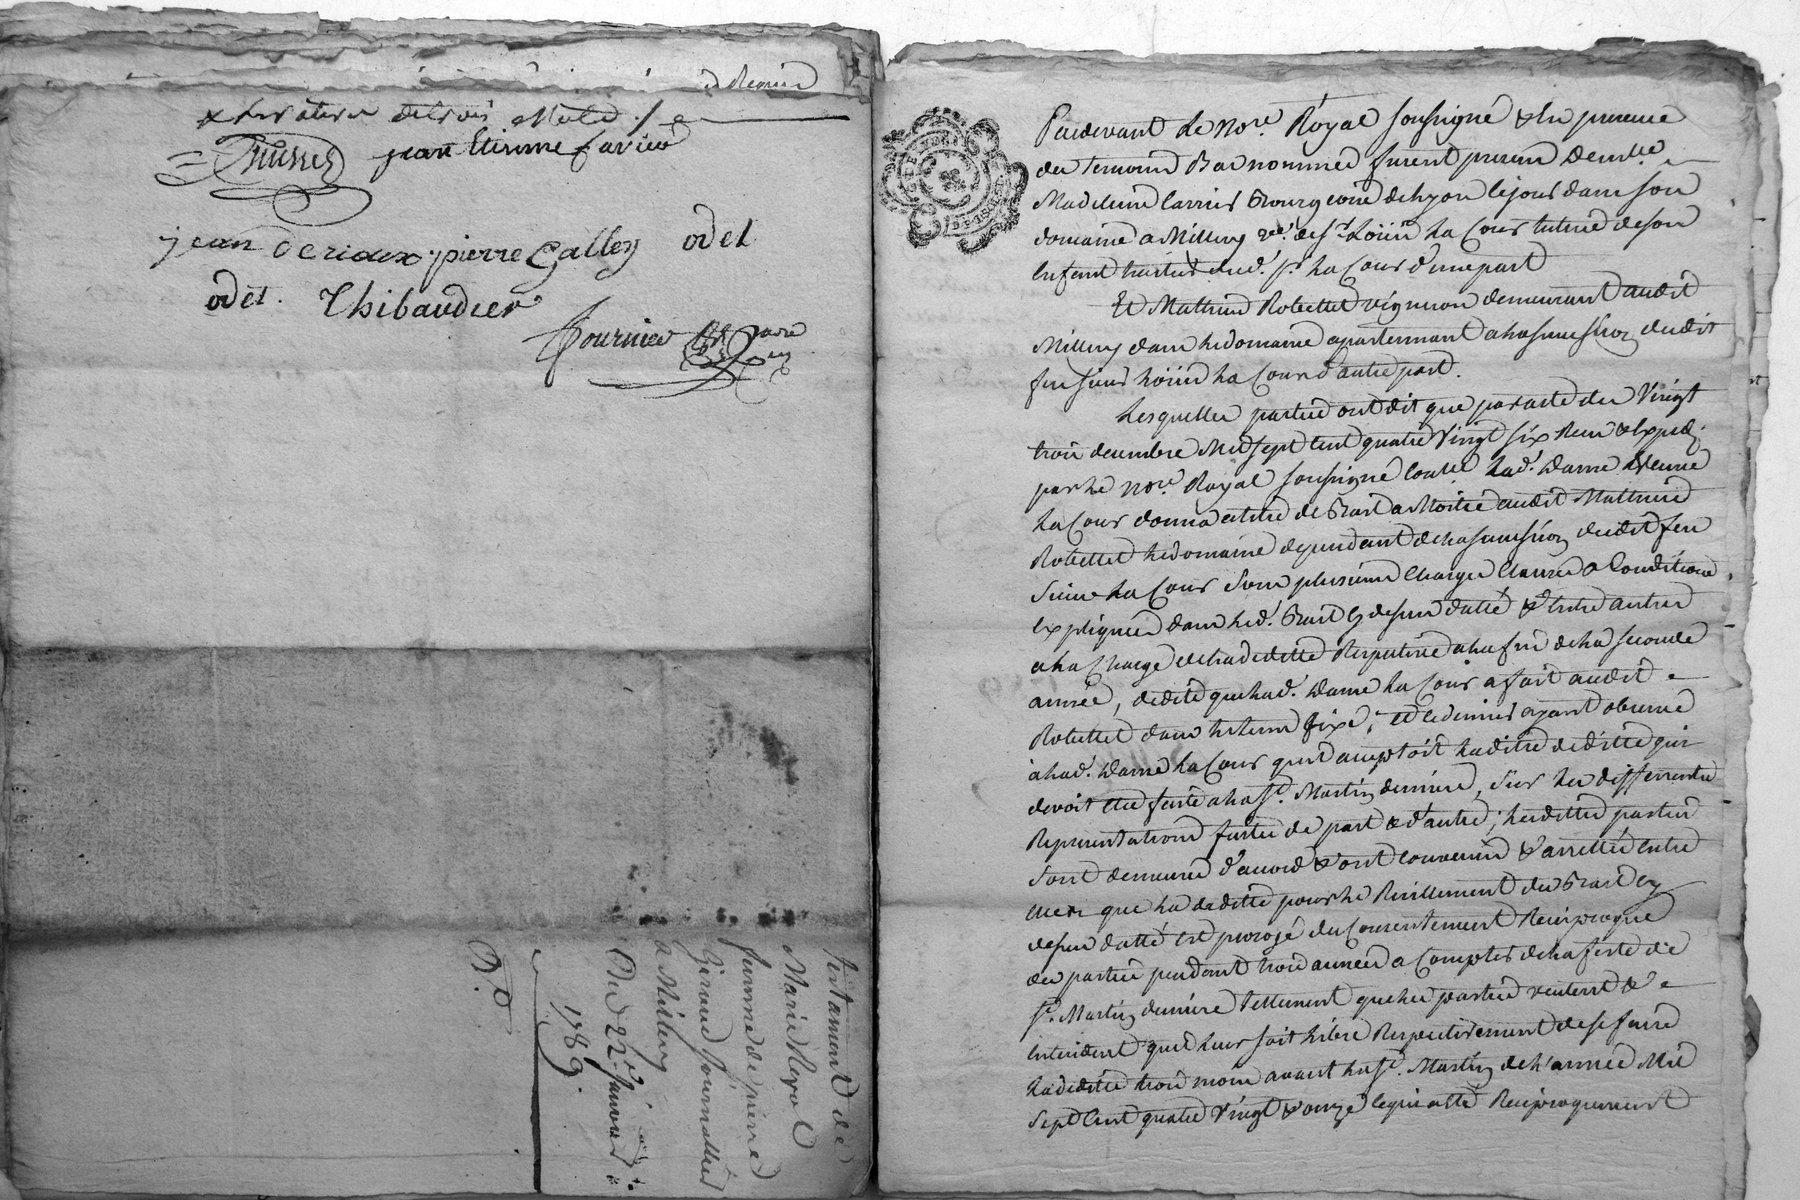 jean Etienne favier
jean Deriaux pierre Galley odet
odet. Thibaudier
fournier
testament de
Marie Revol
femme de pierre
Giraud Journallier
a Millery
Du 22e. Janvier
1789.
Pardevant le No.re Royal soussigné & En presence
des temoins Bas nommés furent presens Demlle
Madeleine Carrier Bourgeoise de Lyon sejour dans son
domaine a Millery ve. de Sr. La Cour tutrice de son
Enfant dud. Sr. La Cour d'une part
Et Mathieu Robettet vigneron demeurant audit
Millery dans le domaine apartennant a la succession dudit
feu sieur La Cour d'autre part.
Lesquelles parties ont dit que par acte du Vingt
trois decembre Mil sept Cent quatre Vingt six Reçu & Expedié
par le No.re Royal soussigné lad. Dame Veuve
La Cour donna a titre de Bail a Moitié audit Mathieu
Robettet le domaine dependant de la succession dudit feu
Sieur La Cour sous plusieurs Charges Clauses & Conditions
Expliquées dans led. Bail cy dessus datté & Entre autres
a la Charge de la deditte Respective a la fin de la seconde
année, dedite que lad. Dame La Cour a fait audit
Robettet dans le tems fixé; et ce dernier ayant observé
à lad. Dame La Cour qu'il acceptoit la ditte deditte qui
devoit être faite a la St. Martin derniere, Sur les differentes
Representations faites de part & d'autre; lesdittes parties
sont demeurées d'accord & ont convenu & arretté Entre
Elles que la deditte pour le Resiliement du Bail cy
dessus datté est prorogé du Consentement Reciproque
des parties pendant trois années a Compter de la feste de
St. Martin derniere tellement que les parties veulent &
Entendent qu'il leur soit libre Respectivement de se faire
la dedite trois mois avant la St. Martin de l'année Mil
Sept Cent quatre Vingt & onze Reciproquement